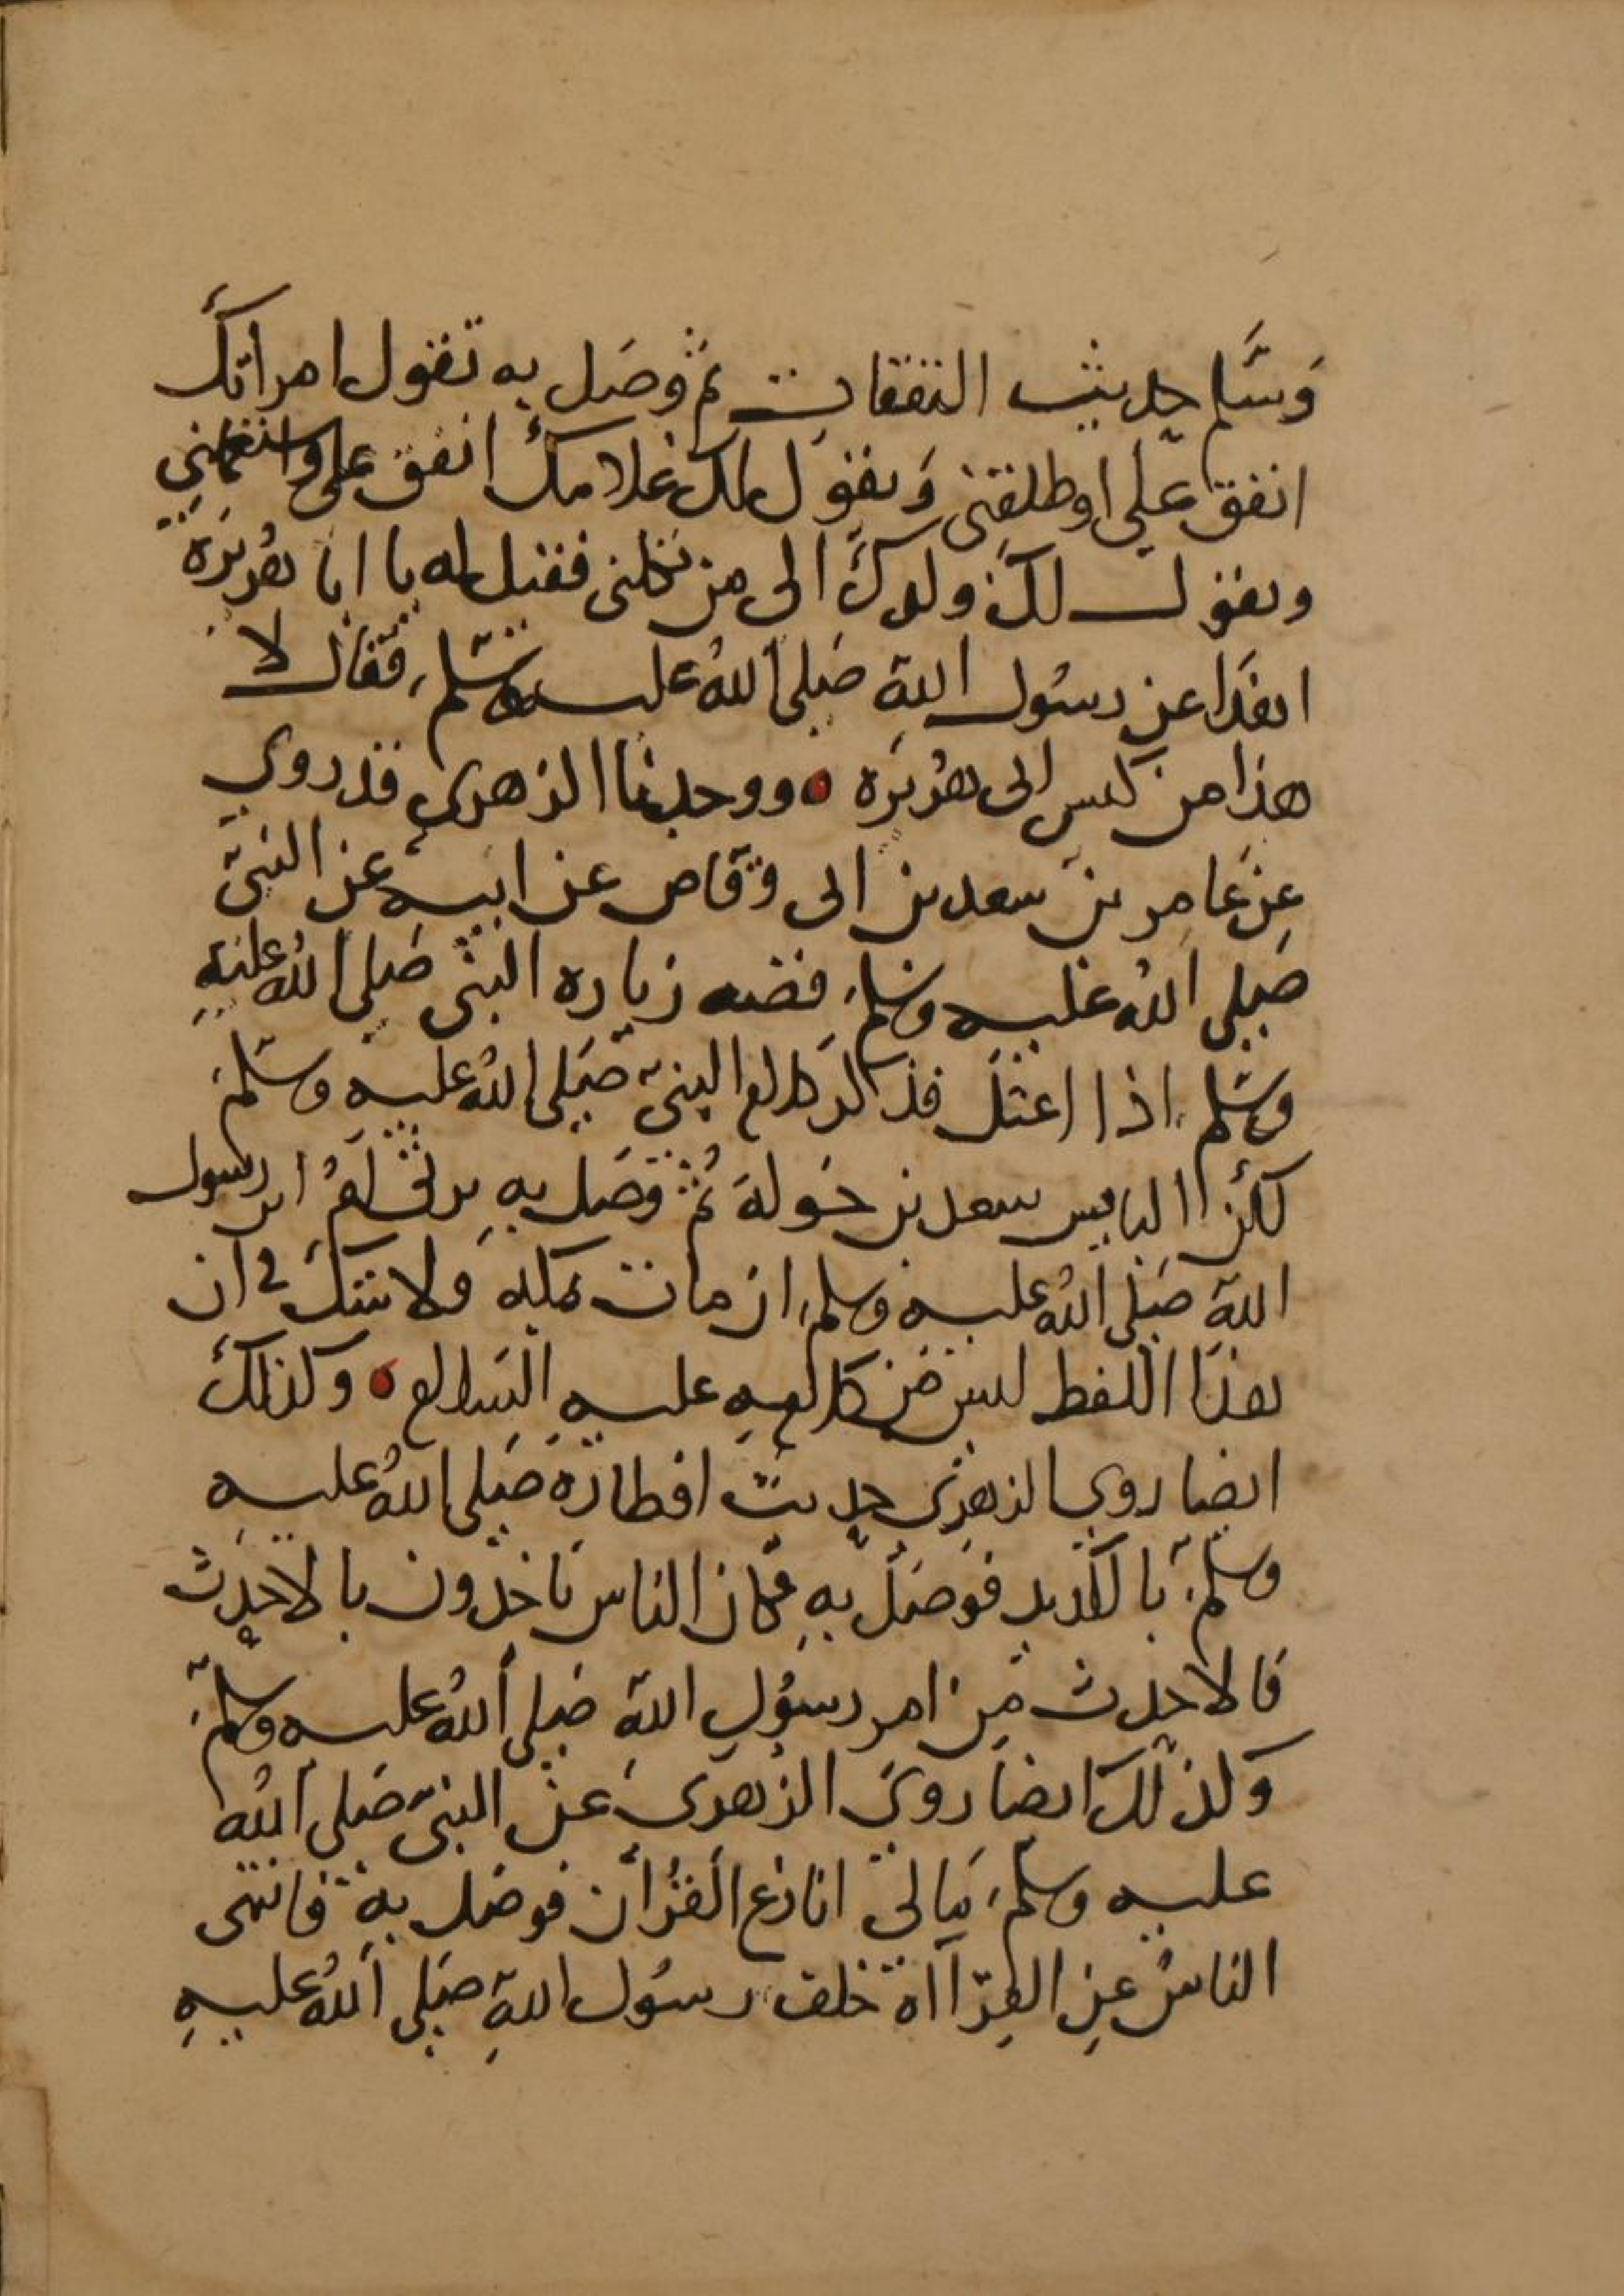 وَسَلَّم حديث النفقات ثم وصَل به تقول امراتكَ
انفق علي او طلقني وَيقول لك غلامكَ انفق علي واستعملني
ويقول لكَ ولدكَ الى من تكلني فقيل له يا ابا هُرَيرَة
اهذا عن رسُول اللهِ صَلى اللهُ عليه وسَلم فقال لا
هذا من كيس ابي هُرَيرَه ٥ ووجدنا الزهري قد روي
عن عَامر بن سعد بن ابي وقاص عن ابيه عن النبيّ
صَلى اللهُ عَليه وسَلم قصه زياره النبي صَلى اللهُ عليهِ
وسَلم اذا اعتل فذكر كلام النبيّ صَلى اللهُ عليه وسَلم
لكن البايس سعد بن خَولة ثُم وصَل به يرثي لهُ رسول
اللهِ صَلى اللهُ عليه وسلم ان مات بمكه ولا شك في ان
هذا اللفظ ليس من كلامه عليه السَلام ٥ وكذلكَ
ايضا روي الزهري حديث افطاره صَلى اللهُ عليه
وسلم بالكديد فوصَل بهِ فكان الناس ياخذون بالاحدث
فالاحدث من امر رسُول اللهِ صَلى اللهُ عليه وسلم
وكذلك ايضا روي الزهري عن النبيّ صَلى الله
عليه وسلم مَا لي انازع القُرآن فوصَل بهِ فانتهى
الناسُ عن القِرآاة خلف رسُول اللهِ صَلى اللهُ عليهِ